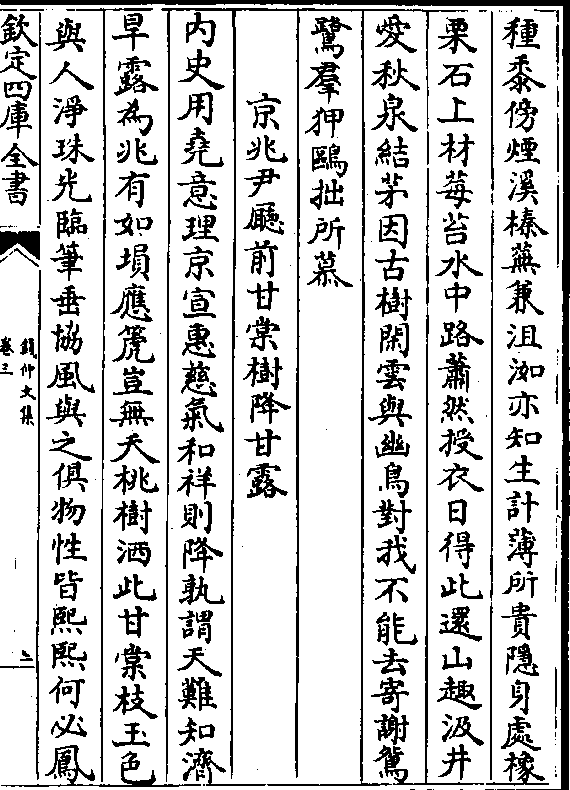 種黍傍煙溪榛蕪兼沮洳亦知生計薄所貴隱身處橡
栗石上材莓苔水中路蕭然授衣日得此還山趣汲井
愛秋泉結茅因古樹閑雲與幽鳥對我不能去寄謝鴛
鷺羣狎鷗拙所慕
京兆尹廳前甘棠樹降甘露
內史用堯意理京宣惠慈氣和祥則降孰謂天難知濟
旱露為兆有如塤應篪豈無夭桃樹洒此甘棠枝玉色
與人淨珠光臨筆垂協風與之俱物性皆熙熙何必鳳
欽定四庫全書
錢仲文集
卷三
二